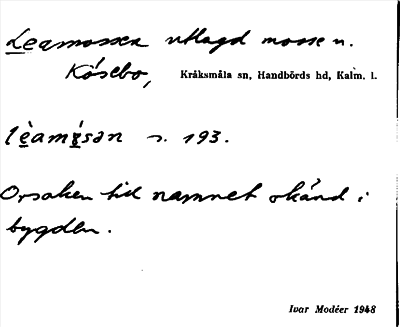 Leamossen utlagd mosse n.
Kösebo, Kråksmåla sn, Handbörds hd, Kalm. l.
lèamɷ̀sən s. 193.
Orsaken till namnet okänd i
bygden.
Ivar Modéer 1948